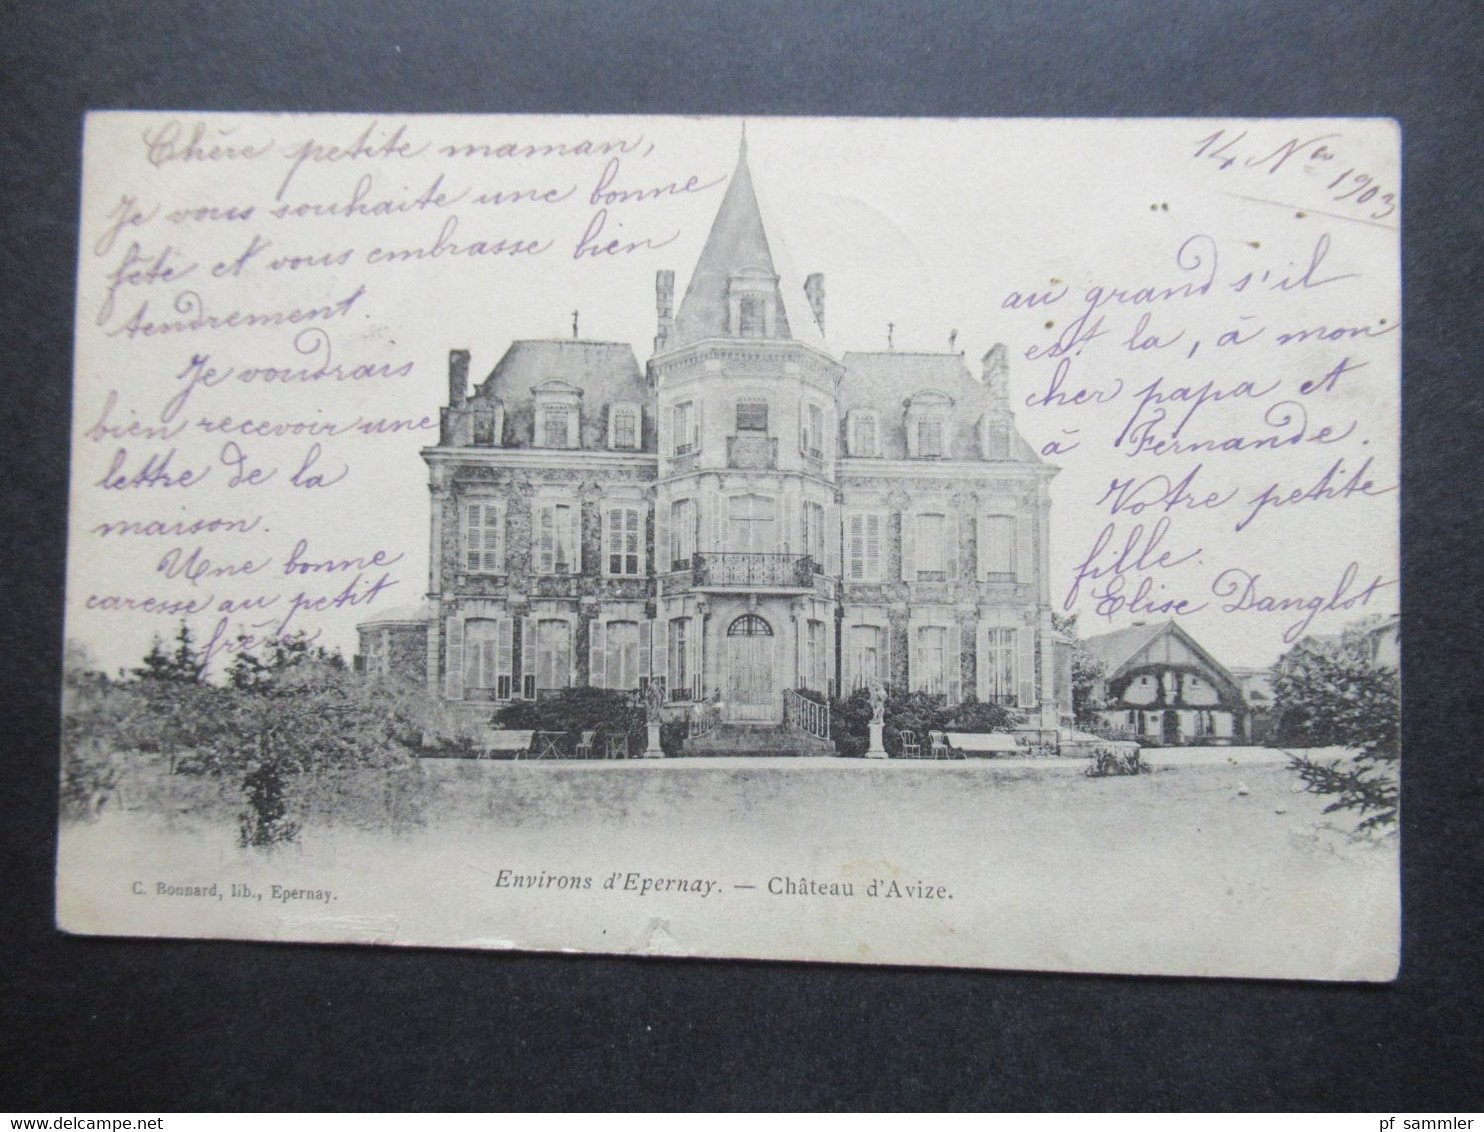 Chère petite maman,
Je vous souhaite une bonne
fête et vous embrasse bien
tendrement.
Je voudrais
bien recevoir une
lettre de la
maison.
Une bonne
caresse au petit
frère
14 Nov 1903
au grand s'il
est la, à mon
cher papa et
à Fernande.
Votre petite
fille.
Elise Danglot
C. Bonnard, lib., Epernay.
Environs d'Epernay. — Château d'Avize.
pf sammler